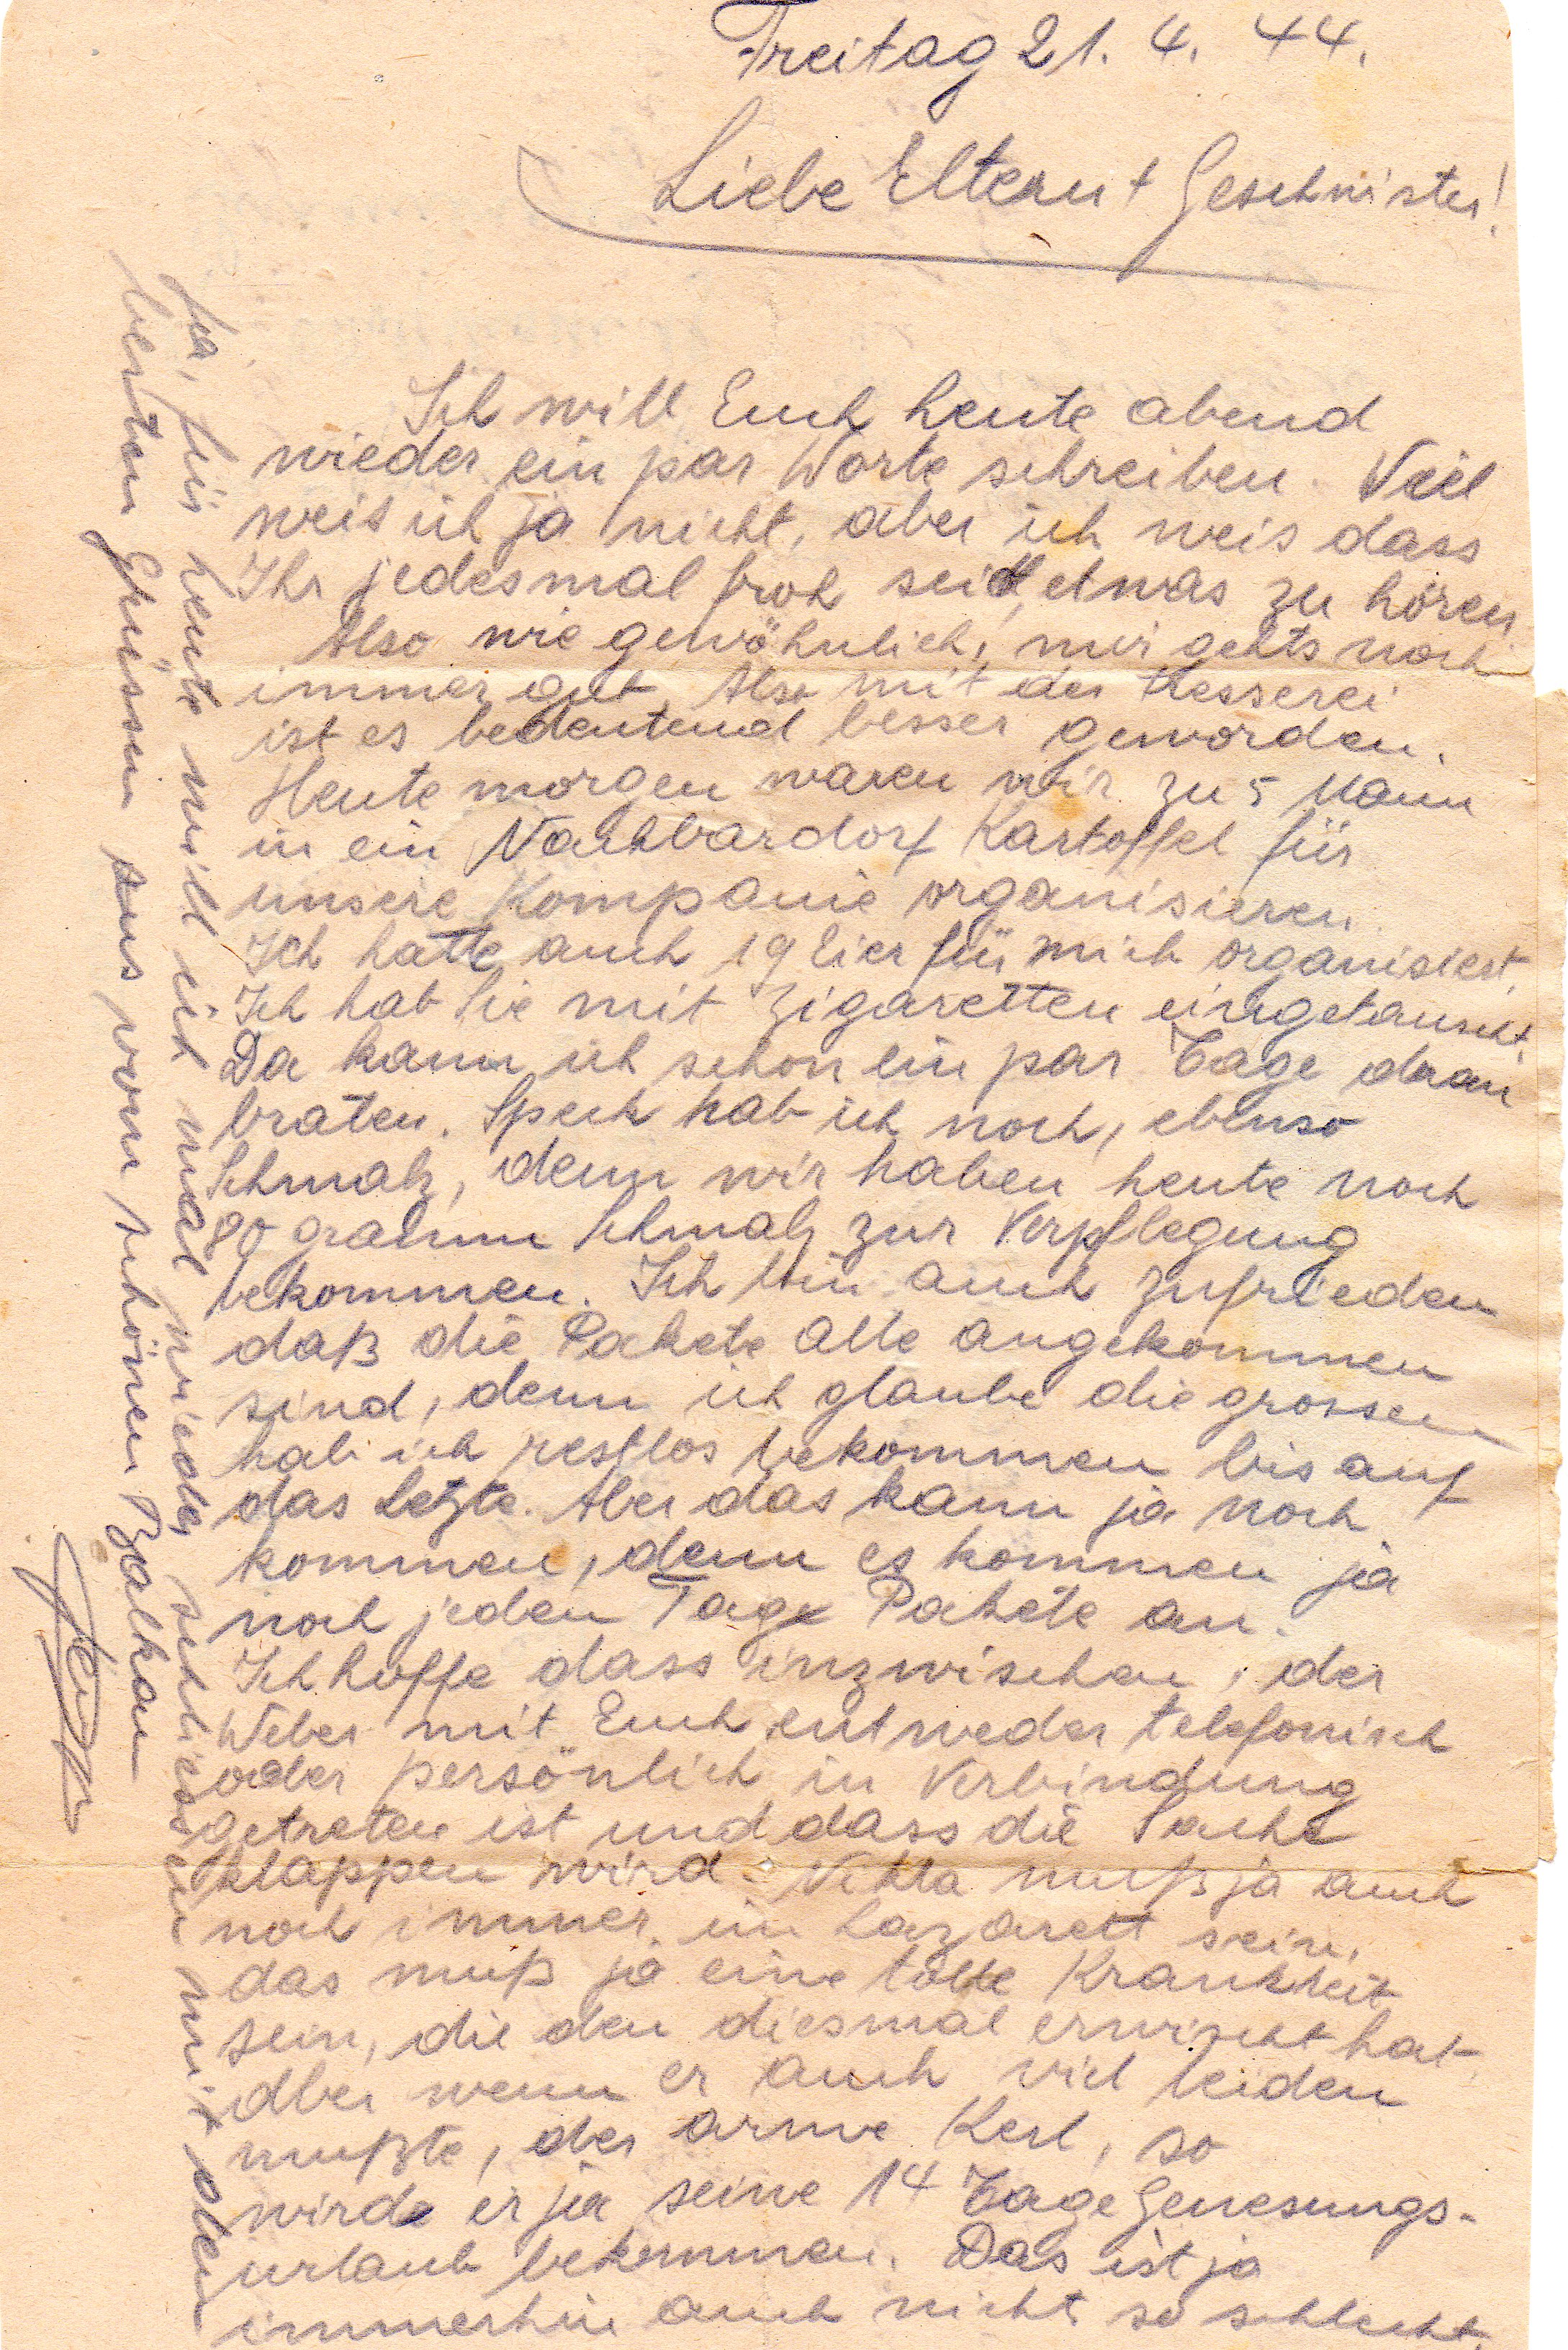 Freitag 21. 4. 44.
Liebe Eltern + Geschwister!
Ich will Euch heute abend
wieder ein par Worte schreiben. Viel
weis ich ja nicht, aber ich weis dass
Ihr jedesmal froh seid, etwas zu hören
Also wie gewöhnlich, mir gehts noch
immer gut. Also mit der Fresserei
ist es bedeutend besser geworden.
Heute morgen waren wir zu 5 Mann
in ein Nachbardorf Kartoffel für
unsere Kompanie organisieren.
Ich hatte auch 19 Eier für mich organisiert.
Ich hab Sie mit Zigaretten eingetauscht.
Da kann ich schon ein par Tage daran
braten. Speck hab ich noch, ebenso
Schmalz, denn wir haben heute noch
80 gramm Schmalz zur Verpflegung
bekommen. Ich bin auch zufrieden
daß die Pakete alle angekommen
sind, denn ich glaube die grossen
hab ich restlos bekommen bis auf
das letzte. Aber das kann ja noch
kommen, denn es kommen ja
noch jeden Tage Pakete an.
Ich hoffe dass inzwischen, der
Weber mit Euch entweder telefonisch
oder persönlich in Verbindung
getreten ist und dass die Sache
klappen wird. muß ja auch
noch immer im Lazarett sein,
das muß ja eine tolle Krankheit
sein, die den diesmal erwischt hat.
Aber wenn er auch viel leiden
mußte, der arme Kerl, so
wird er ja seine 14 Tage Genesungs-
urlaub bekommen. Das ist ja
immerhin auch nicht so schlecht
Na, für heute will ich mal wieder schliessen mit den
besten Grüssen aus vom schönen Balkan